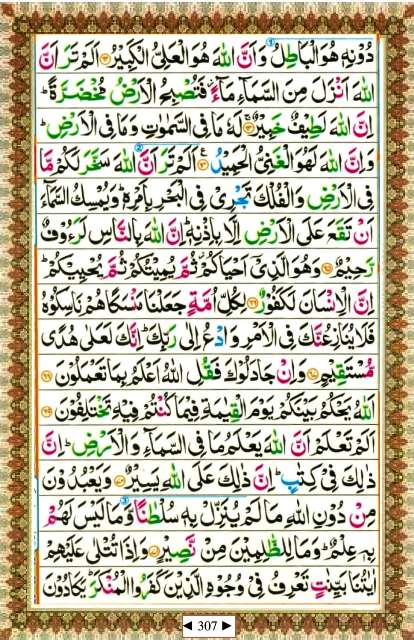 دُوۡنِهٖ هُوَ الۡبَاطِلُ وَاَنَّ اللّٰهَ هُوَ الۡعَلِىُّ الۡكَبِيۡرُ ﴿۶۲﴾ اَلَمۡ تَرَ اَنَّ
اللّٰهَ اَنۡزَلَ مِنَ السَّمَآءِ مَآءً فَتُصۡبِحُ الۡاَرۡضُ مُخۡضَرَّةً ؕ
اِنَّ اللّٰهَ لَطِيۡفٌ خَبِيۡرٌ ﴿۶۳﴾ لَهٗ مَا فِى السَّمٰوٰتِ وَمَا فِى الۡاَرۡضِ ؕ
وَاِنَّ اللّٰهَ لَهُوَ الۡغَنِىُّ الۡحَمِيۡدُ ﴿۶۴﴾ اَلَمۡ تَرَ اَنَّ اللّٰهَ سَخَّرَ لَكُمۡ مَّا
فِى الۡاَرۡضِ وَالۡفُلۡكَ تَجۡرِىۡ فِى الۡبَحۡرِ بِاَمۡرِهٖ ؕ وَيُمۡسِكُ السَّمَآءَ
اَنۡ تَقَعَ عَلَى الۡاَرۡضِ اِلَّا بِاِذۡنِهٖ ؕ اِنَّ اللّٰهَ بِالنَّاسِ لَرَءُوۡفٌ
رَّحِيۡمٌ ﴿۶۵﴾ وَهُوَ الَّذِىۡۤ اَحۡيَاكُمۡ ثُمَّ يُمِيۡتُكُمۡ ثُمَّ يُحۡيِيۡكُمۡ ؕ
اِنَّ الۡاِنۡسَانَ لَـكَفُوۡرٌ ﴿۶۶﴾ لِكُلِّ اُمَّةٍ جَعَلۡنَا مَنۡسَكًا هُمۡ نَاسِكُوۡهُ
فَلَا يُنَازِعُنَّكَ فِى الۡاَمۡرِ وَادۡعُ اِلٰى رَبِّكَ ؕ اِنَّكَ لَعَلٰى هُدًى
مُّسۡتَقِيۡمٍ ﴿۶۷﴾ وَاِنۡ جَادَلُوۡكَ فَقُلِ اللّٰهُ اَعۡلَمُ بِمَا تَعۡمَلُوۡنَ ﴿۶۸﴾
اَللّٰهُ يَحۡكُمُ بَيۡنَكُمۡ يَوۡمَ الۡقِيٰمَةِ فِيۡمَا كُنۡتُمۡ فِيۡهِ تَخۡتَلِفُوۡنَ ﴿۶۹﴾
اَلَمۡ تَعۡلَمۡ اَنَّ اللّٰهَ يَعۡلَمُ مَا فِى السَّمَآءِ وَالۡاَرۡضِ ؕ اِنَّ
ذٰلِكَ فِىۡ كِتٰبٍ ؕ اِنَّ ذٰلِكَ عَلَى اللّٰهِ يَسِيۡرٌ ﴿۷۰﴾ وَيَعۡبُدُوۡنَ
مِنۡ دُوۡنِ اللّٰهِ مَا لَمۡ يُنَزِّلۡ بِهٖ سُلۡطٰنًا وَّمَا لَـيۡسَ لَهُمۡ
بِهٖ عِلۡمٌ ؕ وَمَا لِلظّٰلِمِيۡنَ مِنۡ نَّصِيۡرٍ ﴿۷۱﴾ وَاِذَا تُتۡلٰى عَلَيۡهِمۡ
اٰيٰتُنَا بَيِّنٰتٍ تَعۡرِفُ فِىۡ وُجُوۡهِ الَّذِيۡنَ كَفَرُوا الۡمُنۡكَرَ ؕ يَكَادُوۡنَ
◄ 307 ►